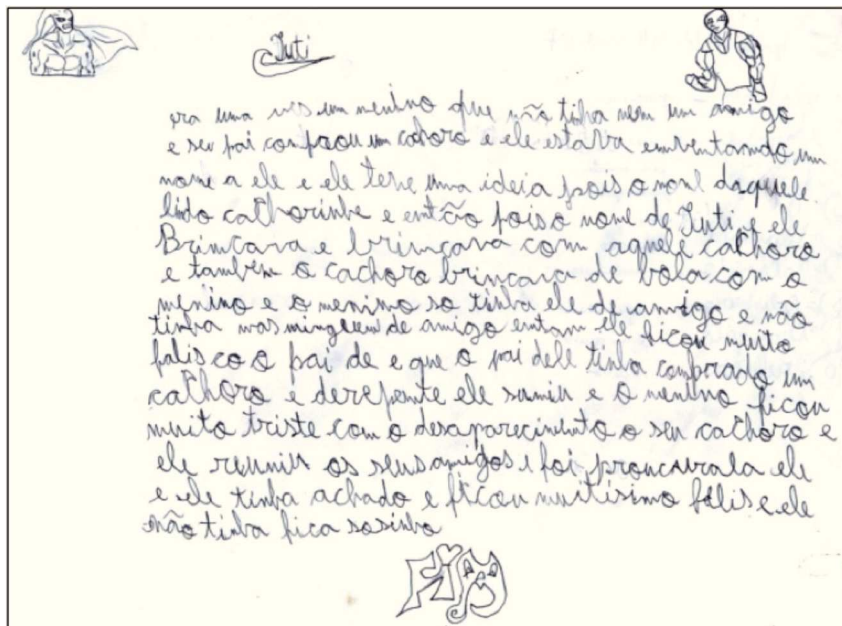 Tuti
era uma ves um menino que não tinha nem um amigo
e seu pai comprou um cahoro e ele estava emventando um
nome a ele e ele teve uma ideia pois o nome daquele
lido cathorinho e então pois o nome de Tuti e ele
Brimcava e brimcava com aquele cathoro
e também o cachoro brincava de bola com o
menino e o menino so tinha ele de amigo e não
tinha mas mingeem de amigo entam ele ficou muito
falis co o pai de e que o pai dele tinha comprado um
cathoro e derepente ele sumiu e o menino ficou
muito triste com o desaparecimento o seu cathoro e
ele reuniu os seus amigos e foi ele
e ele tinha achado e ficou muitisimo fělis e ele
não tinha fica sosinho
FIM